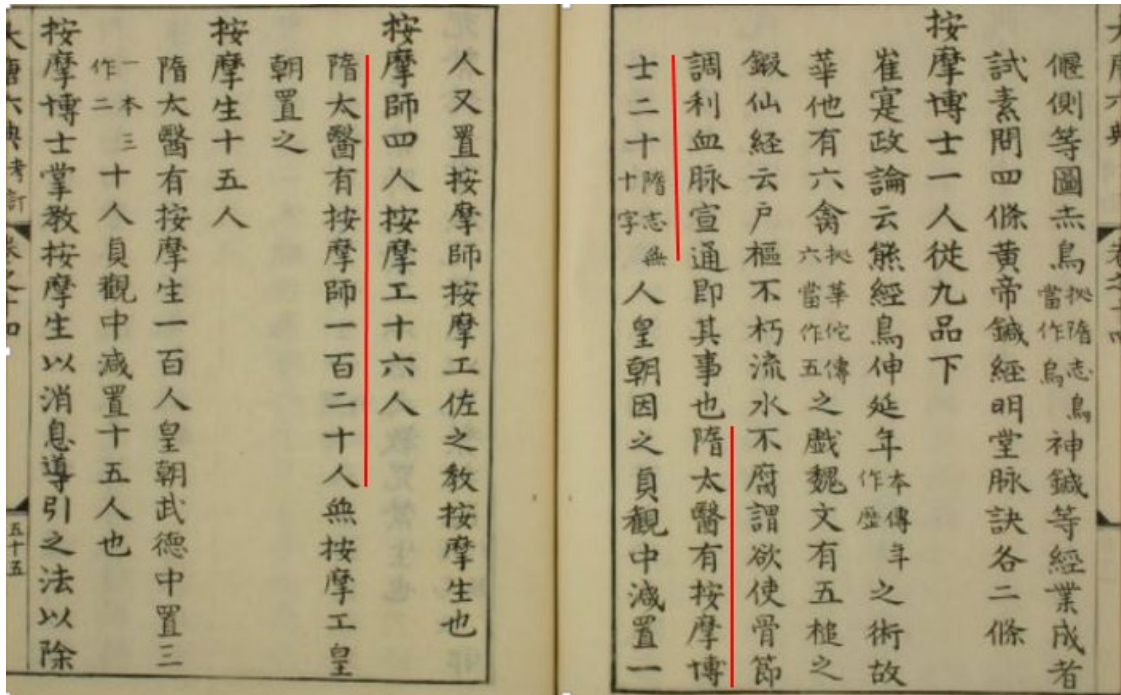 偃側等圖赤鳥拠隋志鳥當作烏神鍼等經業成者
試素問四條黃帝鍼經明堂脉訣各二條
按摩博士一人從九品下
崔寔政論云熊經鳥伸延年本傳年作歷之術故
華他有六禽拠華佗傳六當作五之戲魏文有五槌之
鍛仙経云戶樞不朽流水不腐謂欲使骨節
調利血脉宣通即其事也隋太醫有按摩博
士二十隋志無十字人皇朝因之貞觀中減置一
人又置按摩師按摩工佐之教按摩生也
按摩師四人按摩工十六人
隋太醫有按摩師一百二十人無按摩工皇
朝置之
按摩生十五人
隋太醫有按摩生一百人皇朝武德中置三
一本三作二十人貞觀中減置十五人也
按摩博士掌教按摩生以消息導引之法以除
大唐六典考訂 卷之十四 五十五